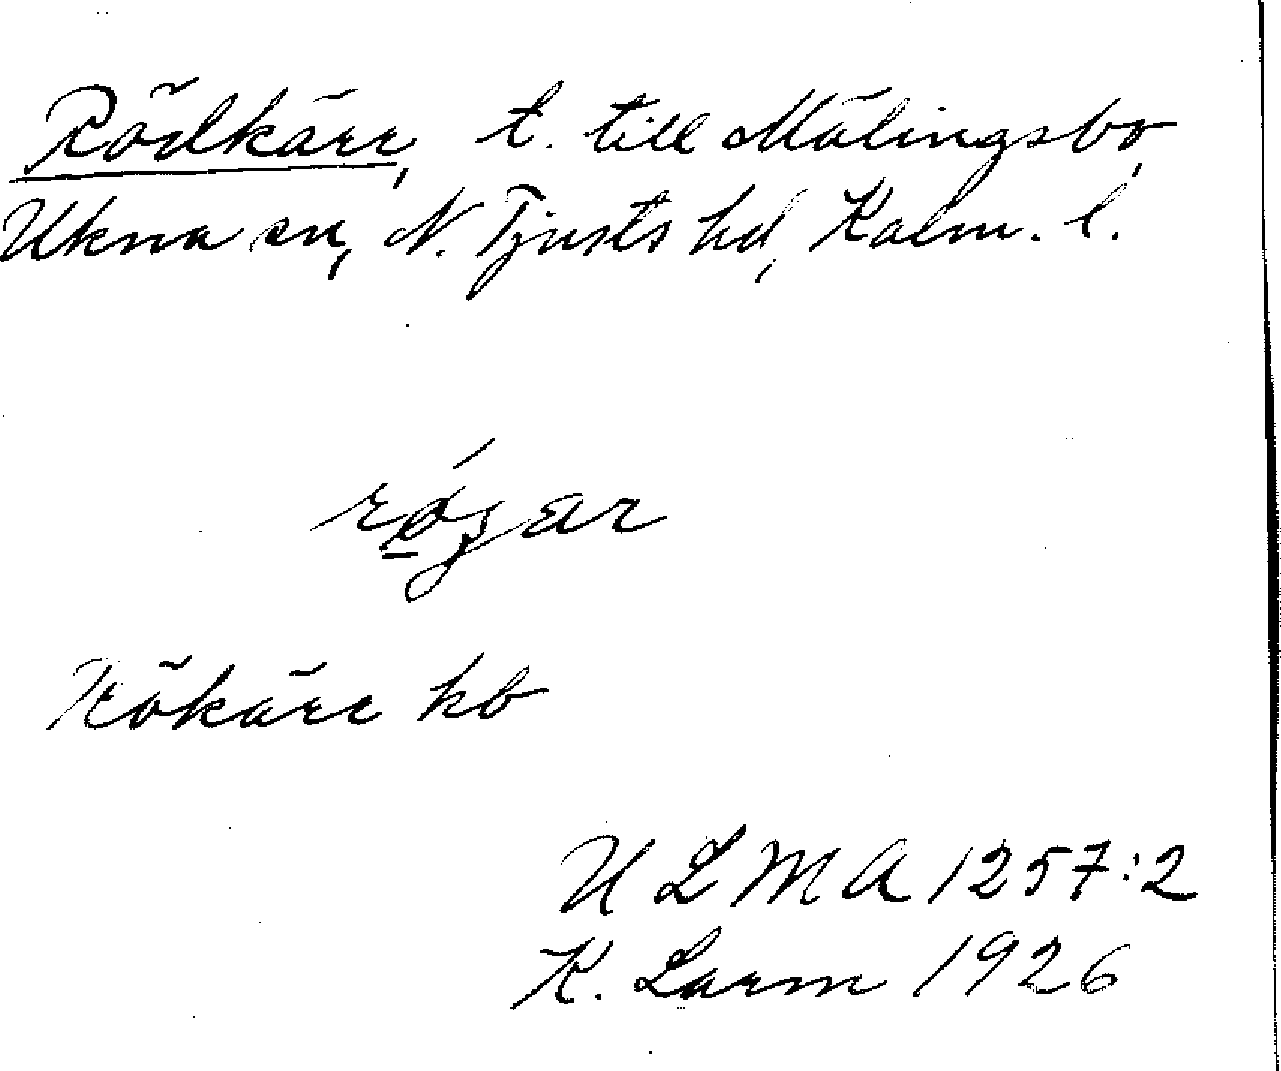 Rödkärr, t. till Mälingsbo,
Ukna sn, N. Tjusts hd, Kalm. l.
Rökärr kb
U L M A 1257:2
K. Larm 1926